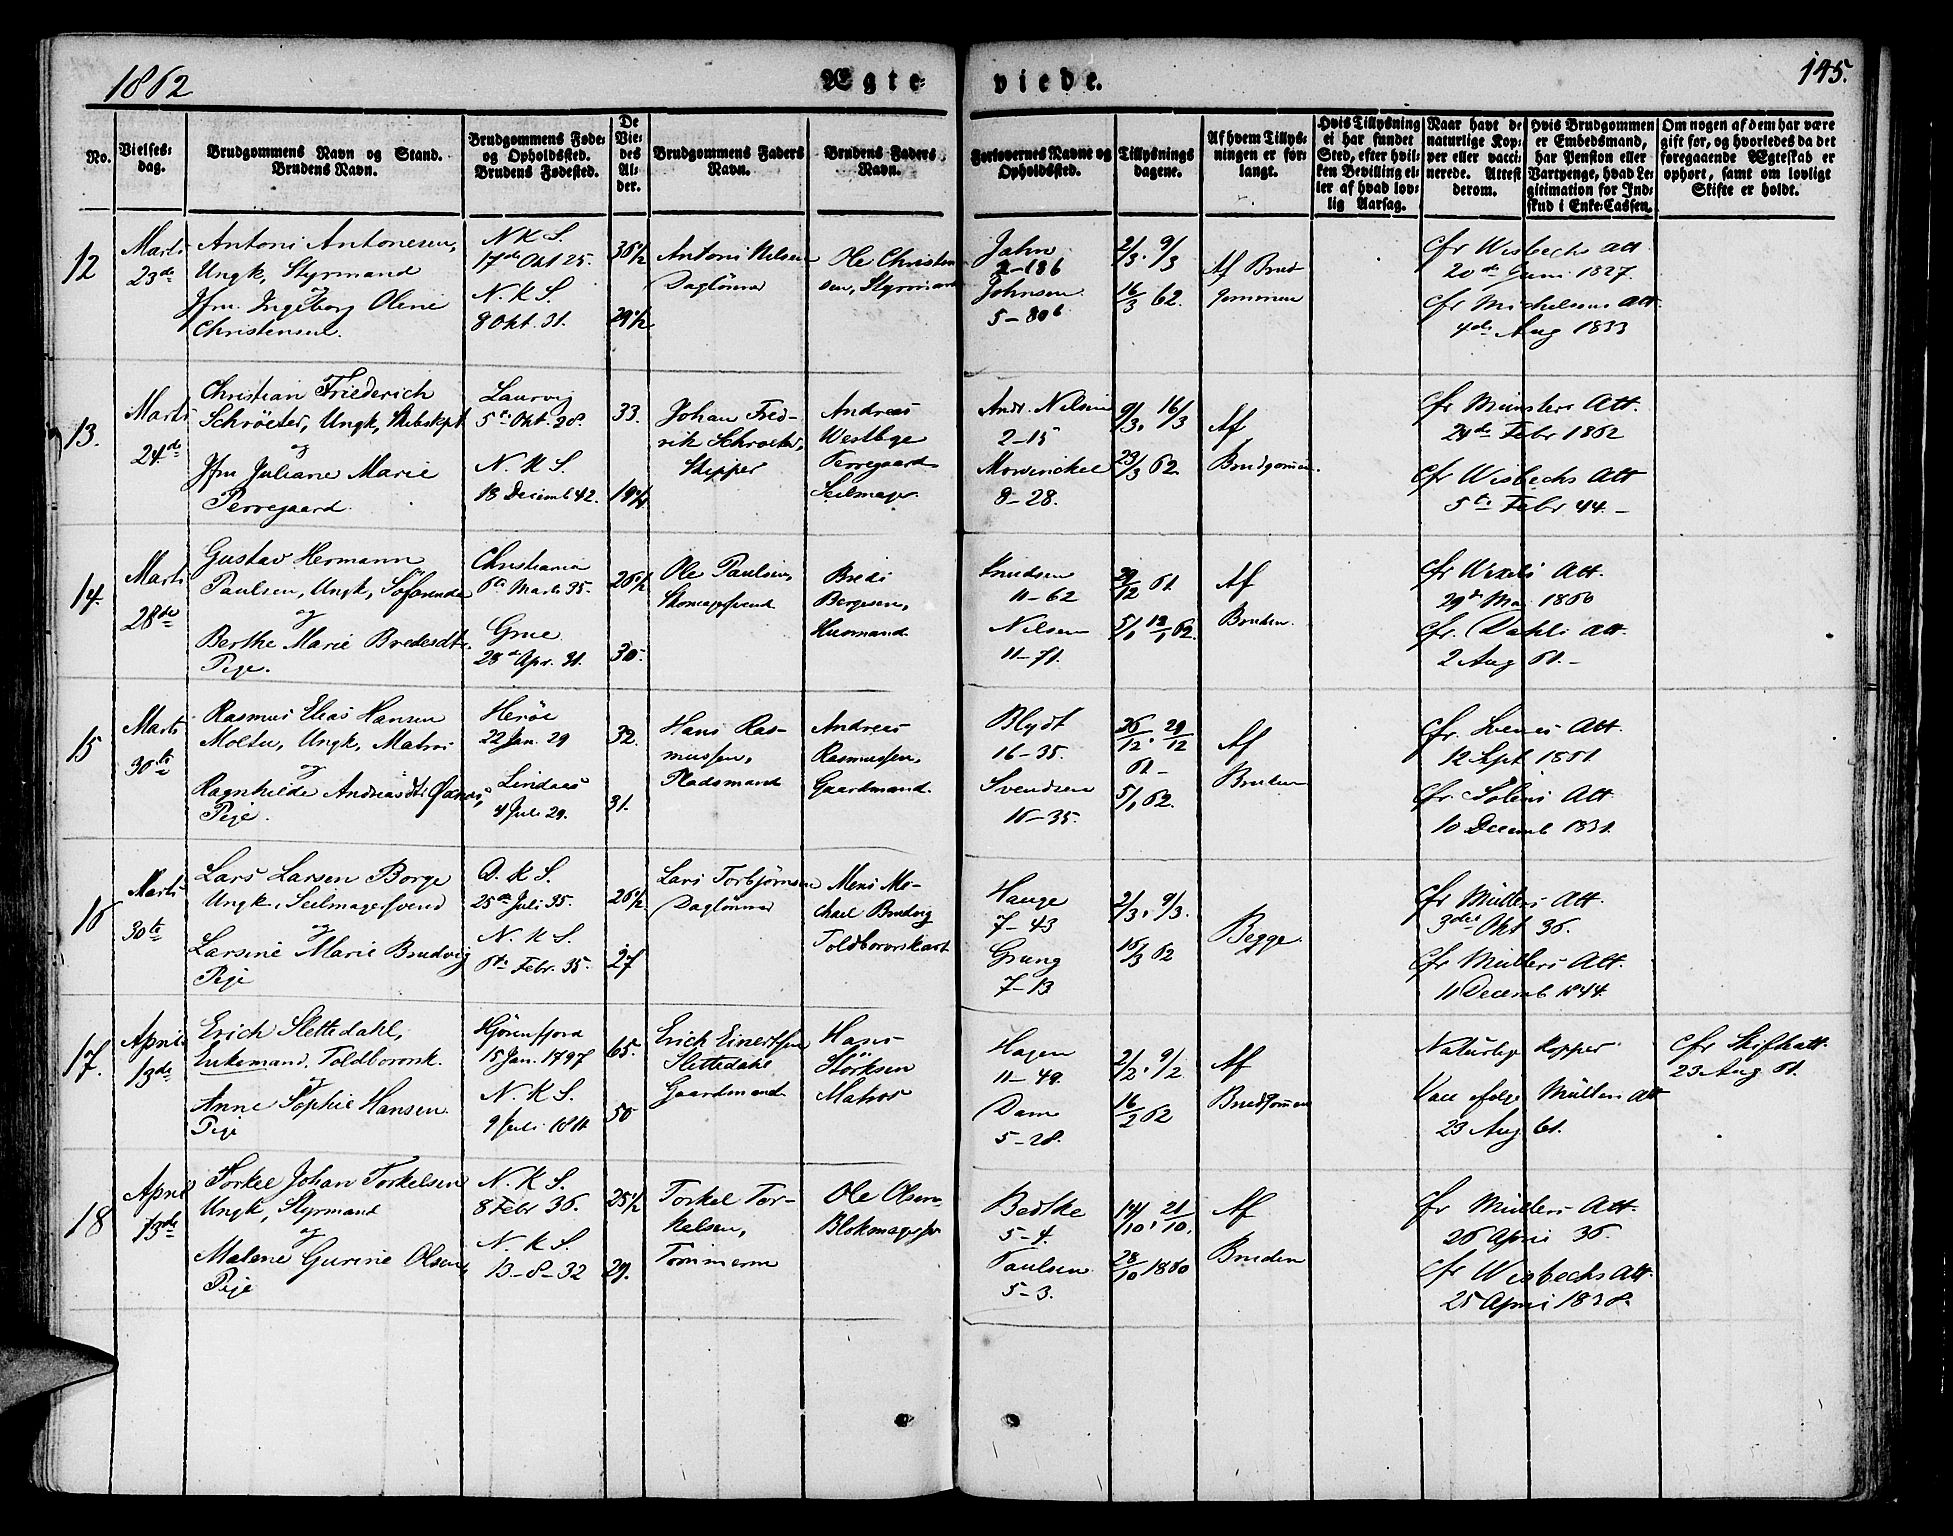 1862
Ægte
viede.
145.
No.
Vielses-
dag.
Brudgommens Navn og Stand.
Brudens Navn.
Brudgommens Føde-
og Opholdssted.
Brudens Fødested.
De
Vie-
des
Al-
der.
Brudgommens Faders
Navn.
Brudens Faders
Navn.
Forlovernes Navne og
Opholdssted.
Tillysnings
dagene.
Af hvem Tillys-
ningen er for-
langt.
Hvis Tillysning
ei har fundet
Sted, efter hvil-
ken Bevilling el-
ler af hvad lov-
lig Aarsag.
Naar havt de
naturlige Kop-
per eller vacci-
nerede. Attest
derom.
Hvis Brudgommen
er Embedsmand,
har Pension eller
Vartpenge, hvad Le-
gitimation for Ind-
skud i Enke-Cassen.
Om nogen af dem har være
gift før, og hvorledes da det
foregaaende Ægteskab er
ophørt, samt om lovligt
Skifte er holdt.
12
Marts
23de
Antoni Antonesen,
Ungk, Styrmand
og
Jfm. Ingeborg Oline
Christensen.
N. K. S.
17de Okt 25.
N. K. S.
8 Okt. 31.
36 1/2
29 1/2
Antoni Nilsen
Daglönner
Ole Christen-
sen, Styrmand
Jahn
2-186
Johnsen
5-806
2/3. 9/3
16/3 62.
Af Brud
gommen
cfr Wisbechs Att
20de Juni 1827.
cfr Michelsens Att.
4de Aug 1833
13.
Marts
24de
Christian Friederich
Schröeter, Ungk, Skibskpt
og
Jfm Juliane Marie
Perregaard
Laurvig
5te Okt. 28.
N. K. S.
18 Decemb 42.
33.
19 1/4
Johan Fred-
rik Schroeter,
Skipper
Andreas
Westbye
Perregaard
Seilmager
Andr. Nilsen
2-15
Mowinckel
8-28.
9/3. 16/3
23/3 62.
Af
Brudgommen.
cfr Münsters Att.
24de Febr 1862
cfr Wisbechs Att
5te Febr 44.-
14.
Marts
28de
Gustav Hermann
Paulsen, Ungk, Söfarende
og
Berthe Marie Bredesdtr.
Pige.
Christiania
6te Marts 35.
Grue
28de Apr. 31.
26 1/2
30.
Ole Paulsen,
Skomagersvend
Brede
Borgesen,
Huusmand.
Knudsen
11-62
Nilsen
11-71.
29/12 61.
5/1 12/1 62.
Af
Bruden.
cfr Wexels Att.
29de Mai 1860
cfr. Dahls Att.
2 Aug 61.-
15
Marts
30te
Rasmus Elias Hansen
Moltu, Ungk, Matros
og
Ragnhilde Andreasdtr
Pige.
Heröe
22 Jan. 29
Lindaas
4 Juli 29.
32.
31.
Hans Ras-
mussen,
Pladsmand
Andreas
Rasmussen,
Gaardmand.
Blydt
16-35.
Svendsen
16-35.
26/12. 29/12
61-
5/1 62.
Af
Bruden
cfr. Att
12 Sept 1851.
cfr. Att
10 Decemb 1831.
16
Marts
30te
Lars Larsen Borge
Ungk, Seilmagersvend
og
Larsine Marie Brudvig
Pige
D. K. S.
25de Juli 35.
N. K. S.
6te Febr. 35.
26 1/2.
27
Lars Torbjörnsen
Daglönner
Mons Mi-
chael Brudvig
Toldbetjent
Hauge
7-43
Grung
7-13
2/3. 9/3.
16/3 62
Begge.
cfr Müllers Att.
3die Okt 36.
cfr Müllers Att.
11 Decemb 1844.
17.
April
13de
Erich Slettedahl,
Enkemand. Toldboroersk.
og
Anne Sophie Hansen
Pige
15 Jan. 1797
N. K. S.
9 Juli 1811
65.
50
Erich Einertsen
Slettedahl
Gaardmand
Hans
Störksen
Matros
Hagen
11-49.
Dam
5-28.
2/2. 9/2.
16/2 62
Af
Brudgommen
Naturlige Kopper
Vacc ifölge Müllers Att
23 Aug 61.
cfr Skifteatt.
23 Aug 61.
18
April
13de
Torkel Johan Torkelsen
Ungk, Styrmand
og
Malene Gurine Olsen,
Pige
N. K. S.
8 Febr 36.
N. K. S.
13-8-32
25 1/2
29.
Torkel Tor-
kelsen,
Tömmerm
Ole Olsen
Blokmager
Bedtke
5-4.
Paulsen
5-3.
14/10. 21/10.
28/10 1860
Af
Bruden
cfr Müllers Att.
26 April 36.
cfr Wisbechs Att.
25 April 1838.